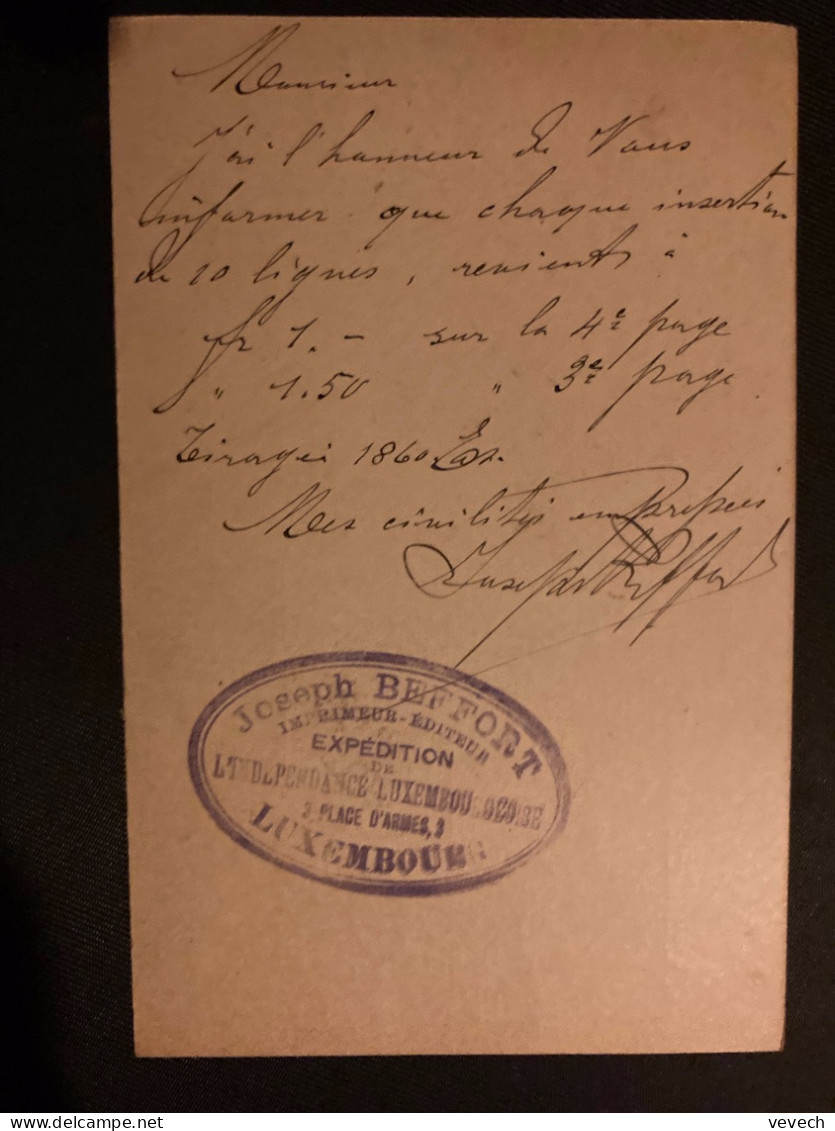 Monsieur
J'ai l'honneur de Vous
informer que chaque insertion
de 20 lignes, revient à
fr 1.- sur la 4e page
" 1.50 " 3e page
Tirage: 1860 Ex.
Mes civilités empressées
Joseph Beffort
Joseph BEFFORT
IMPRIMEUR-ÉDITEUR
EXPÉDITION
DE
L'INDÉPENDANCE LUXEMBOURGEOISE
3, PLACE D'ARMES, 3
LUXEMBOURG
delcampe.net
vevech